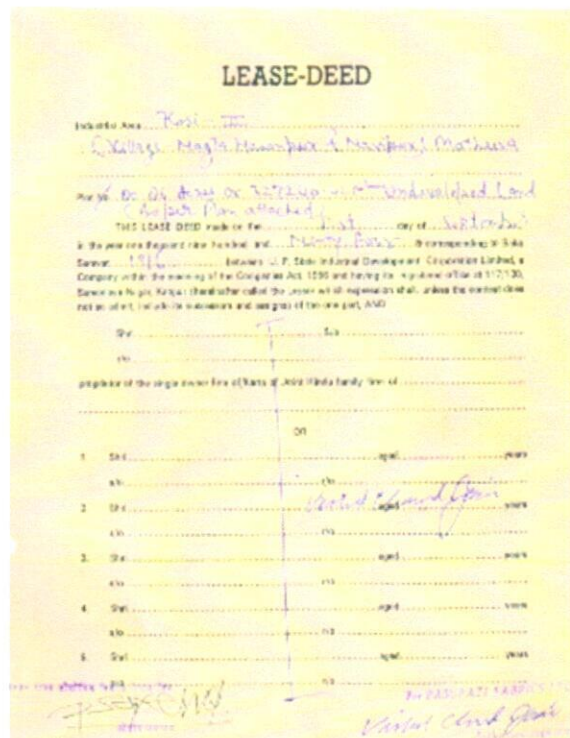 LEASE-DEED
Industrial Area Kosi III
(Village Nagla Hasanpur & Navipur) Mathura
Plot No. Acre or Undeveloped Land
(As per Plan attached)
THIS LEASE DEED made on the First day of September
in the year one thousand nine hundred and Ninety Four corresponding to Saka
Samvat 1916 between U. P. State Industrial Development Corporation Limited, a
Company within the meaning of the Companies Act, 1956 and having its registered office at 117/130,
Sarvodaya Nagar, Kanpur (hereinafter called the Lessor which expression shall, unless the context does
not so admit, include its successors and assigns) of the one part, AND
Shri S/o
r/o
proprietor of the single owner firm of/Karta of Joint Hindu family firm of
OR
1. Shri aged years
s/o r/o
2. Shri aged years
s/o r/o
3. Shri aged years
s/o r/o
4. Shri aged years
s/o r/o
5. Shri aged years
s/o r/o
For PASUPATI FABRICS LTD